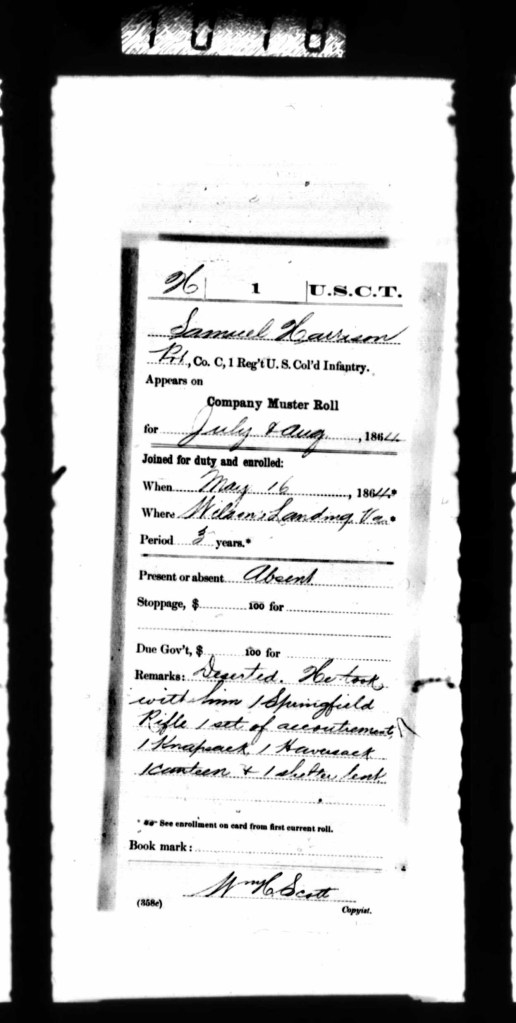 1018
H 1 U.S.C.T.
Samuel Harrison
Pvt, Co. C, 1 Reg't U. S. Col'd Infantry.
Appears on
Company Muster Roll
for July & Aug, 1864
Joined for duty and enrolled:
When May 16, 1864*
Where Wilson's Landing Va*
Period 3 years.*
Present or absent Absent
Stoppage, $ 100 for
Due Gov't, $ 100 for
Remarks: Deserted. He took
with him 1 Springfield
Rifle 1 set of accoutrements
1 Knapsack 1 Haversack
1 canteen & 1 shelter tent
* See enrollment on card from first current roll.
Book mark:
Wm C Scott
(358c) Copyist.